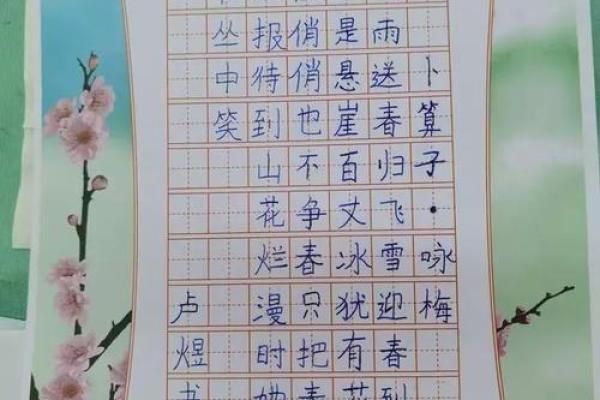 卜算子·咏梅
雨送春归飞雪迎春到
是悬崖百丈冰犹有花
俏俏也不争春只把春
报待到山花烂漫时她
丛中笑
卢煜书